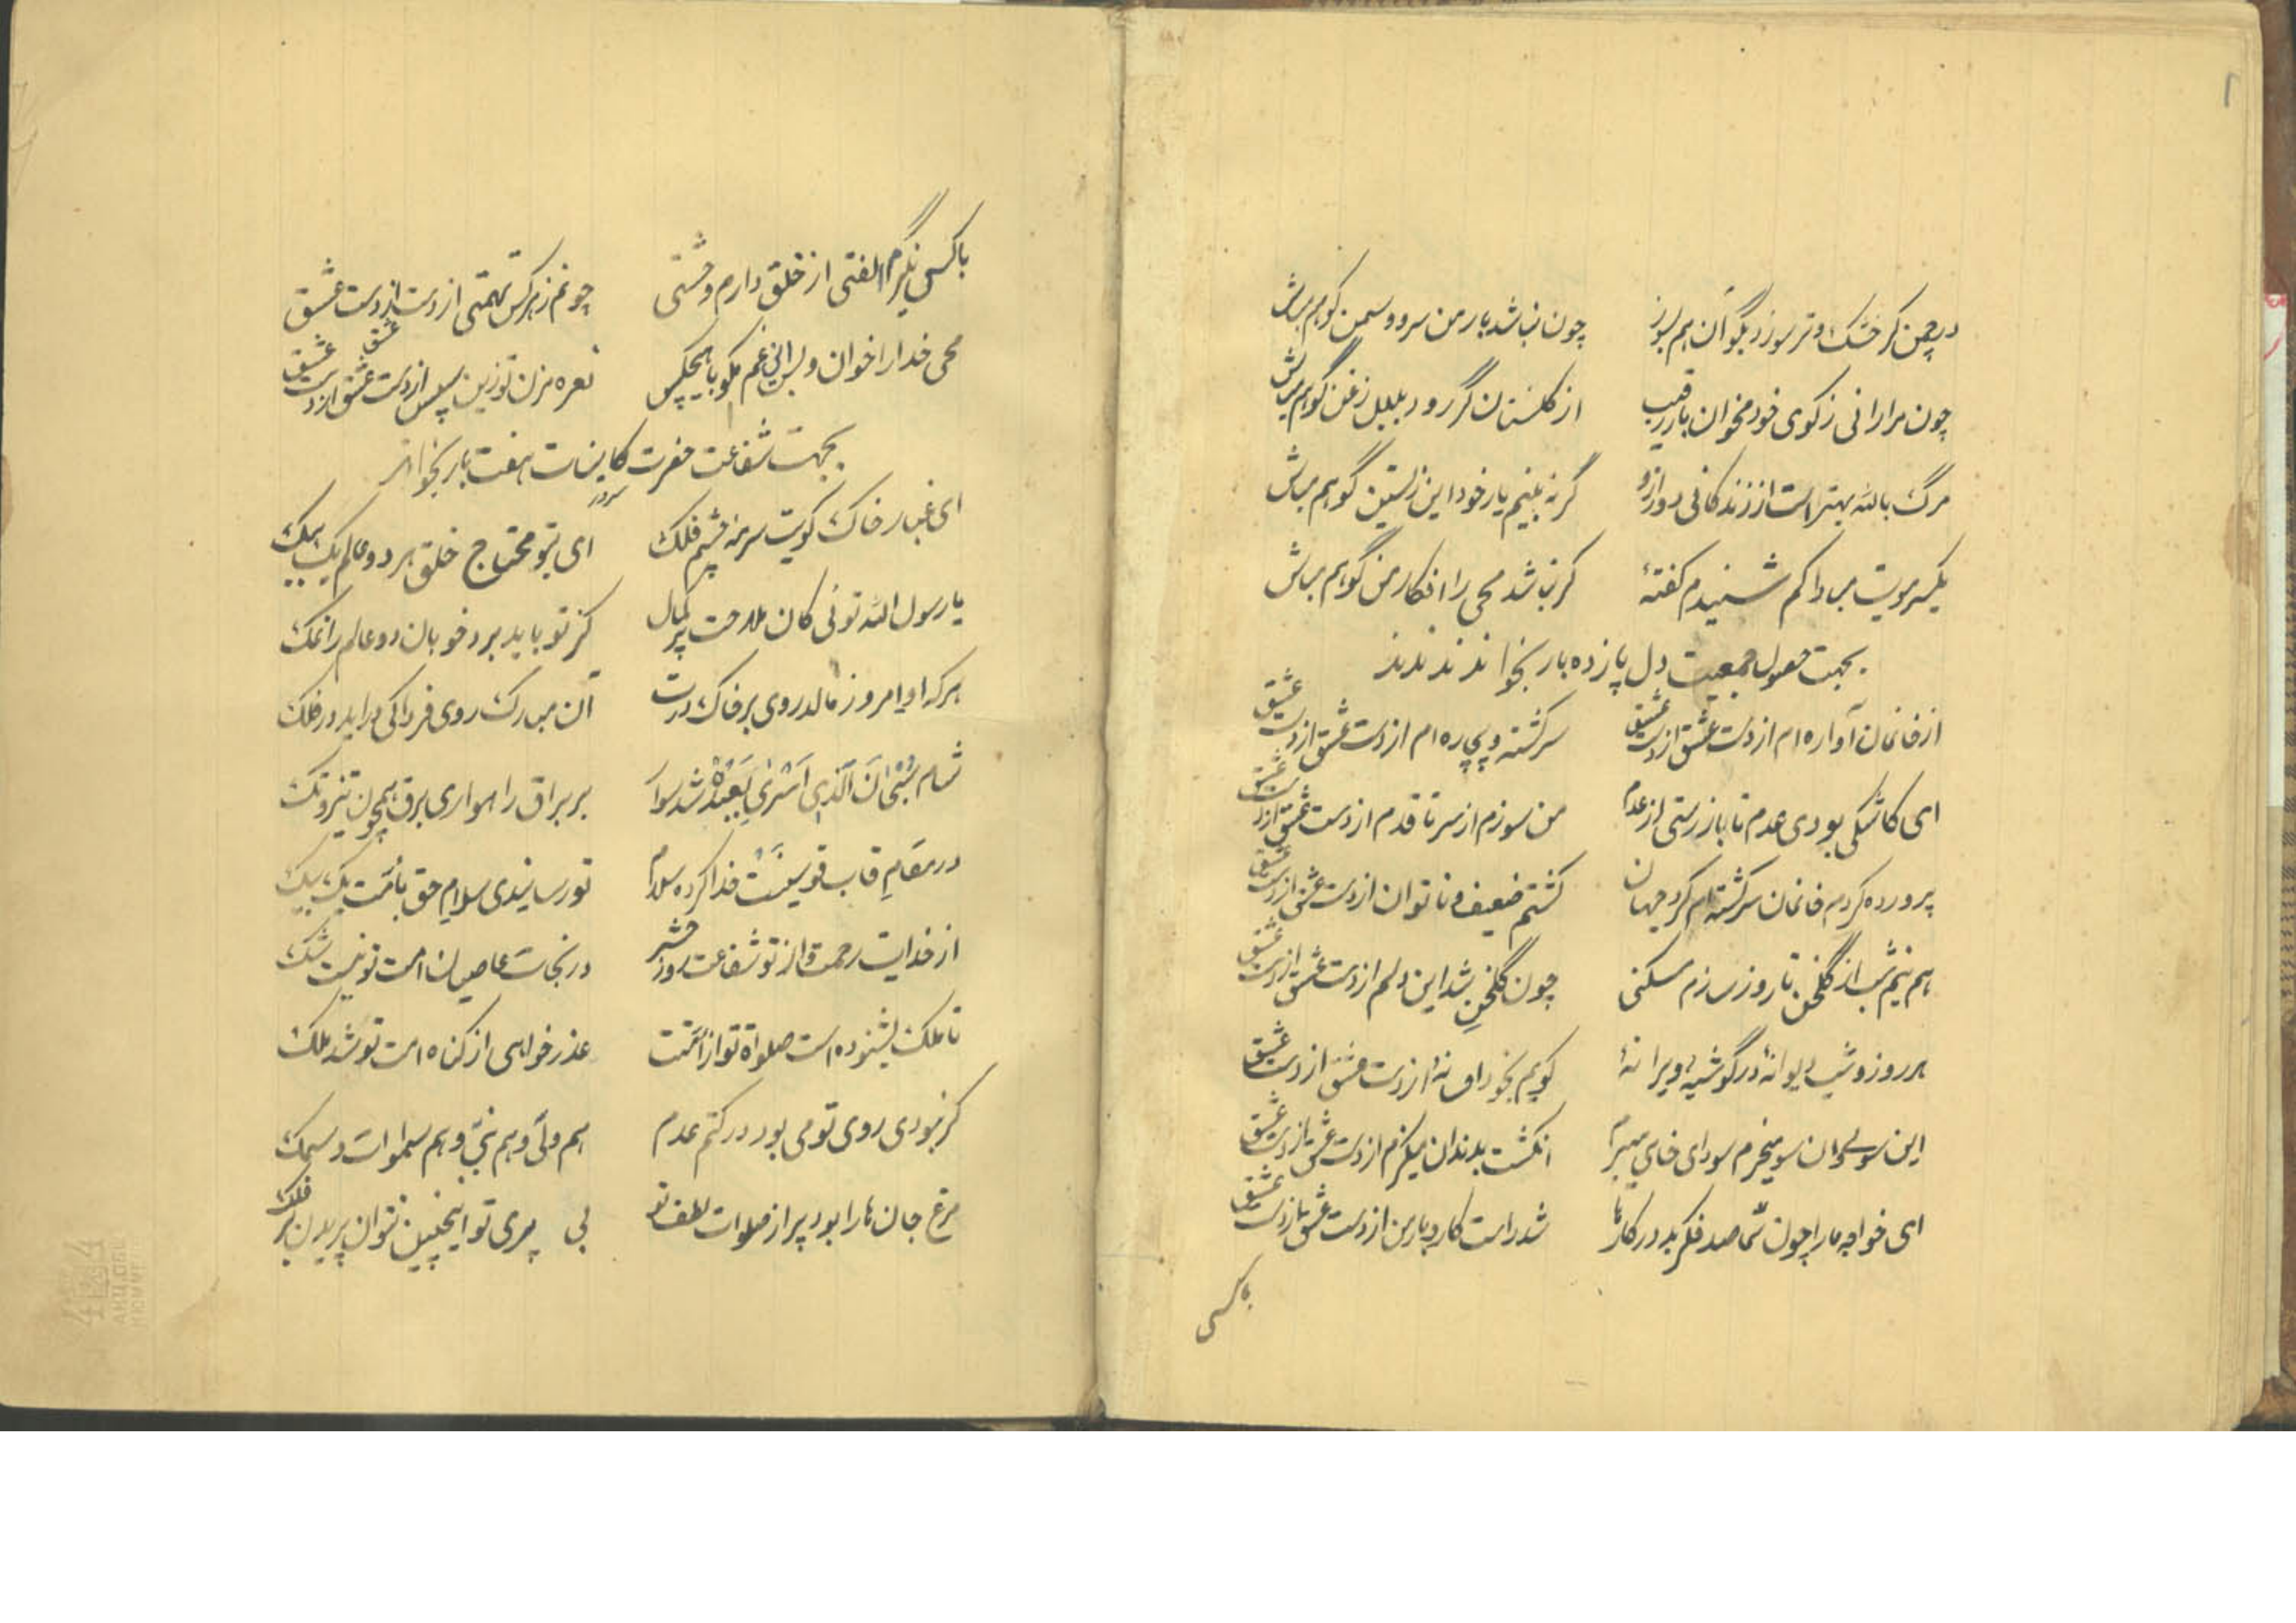 در چمن گر خشک و تر سوزد بگو آن هم بسوز چون نباشد یار من سرو و سمن گو هم مباش
چون مرا رانی ز کوی خود مخوان بار رقیب از گلستان گر رود بلبل زغن گو هم مباش
مرگ بالله بهتر است از زندگانی دور ازو گر نه بینم یار خود این زیستن گو هم مباش
یکسر مویت مبادا کم شنیدم گفتهٔ گر نباشد محی را افکار من گو هم مباش
بجهت حصول جمعیت دل پانزده بار بخوانند
از خانمان آواره ام از دست عشق از دست عشق سرگشته و بیچاره ام از دست عشق از دست عشق
ای کاشکی بودی عدم تا باز رستی از عدم من سوزم از سر تا قدم از دست عشق از دست عشق
پرورده کردم خانمان سرگشته ام گرد جهان گشتم ضعیف و ناتوان از دست عشق از دست عشق
هم نیم شب از گلخن تا روز سازم مسکنی چون گلخن شد این دلم از دست عشق از دست عشق
هر روز و شب دیوانهٔ در گوشهٔ ویرانهٔ گویم بخود افسانهٔ از دست عشق از دست عشق
این سو و آن سو میخرم سودای خامی میپزم انگشت بدندان میگزم از دست عشق از دست عشق
ای خواجه ما را چون شما صد فکر بد در کارها شد راست کار و بار من از دست عشق از دست عشق
با کسی
با کسی نگیرم الفتی از خلق دارم وحشتی چو نم ز هر کس تهمتی از دست عشق از دست عشق
محی خدا را خوان و بس این غم مگو با هیچکس نعره مزن تو زین سپس از دست عشق از دست عشق
بجهت شفاعت حضرت سرور کاینات هفت بار بخواند
ای غبار خاک کویت سرمه چشم فلک ای بتو محتاج خلق هر دو عالم یک بیک
یا رسول الله توئی کان ملاحت پر کمال کز تو باید برد خوبان دو عالم را نمک
هر که او امروز مالد روی بر خاک درت آن مبارک روی فردا کی درآید در فلک
شام سُبْحَانَ الَّذِی اَسْرٰی بِعَبْدِهٖ شد سوار بر براق راهواری برق همچون تیزو تک
در مقام قاب قوسینت خدا کرده سلام تو رسانیدی سلام حق بامت یک بیک
از خدایت رحمت و از تو شفاعت روز حشر در نجات عاصیان امت تو نیست شک
تا ملک بشنوده است صلواة تو از امتت عذر خواهی از گناه امت تو شد ملک
گر نبودی روی تو می بود در کتم عدم هم ولی و هم نبی و هم سموات و سمک
مرغ جان ما را بود پر از صلوات لطف تو بی پری تو اینچنین نتوان پریدن بر فلک